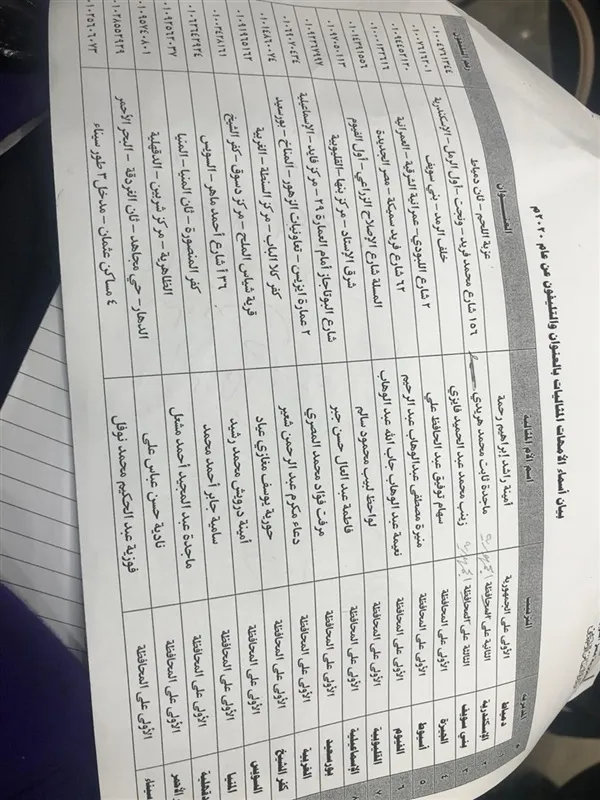 بيان أسماء الأمهات المثاليات بالعنوان والتليفون عن عام ٢٠٢٠م
م المديرية الترتيب اسم الأم المثالية العنوان رقم التليفون
١ دمياط الأولى على الجمهورية أمينة راشد إبراهيم رحمة عزبة اللحم – ثان دمياط ٠١٠٠٤٧٦١٣٤٤
٢ الإسكندرية الثانية على المحافظة ماجدة ثابت محمد هريدي ١٥٦ شارع محمد فريد – ونجت – أول الرمل – الإسكندرية ٠١٠٠٧٦١٦٣٠١
٣ بني سويف الثالثة على المحافظة زينب محمد عبد الحميد فايزي خلف الرمد – بني سويف
٤ الجيزة الأولى على المحافظة سهام توفيق عبد الحافظ علي ٢ شارع اللبودي – عمرانية الشرقية – العمرانية
٥ أسيوط الأولى على المحافظة منيرة مصطفى عبدالوهاب عبد الرحيم ٦٢ شارع فريد سميكة – مصر الجديدة
٦ الفيوم الأولى على المحافظة نعيمة عبد الوهاب جاب الله عبد الوهاب المسلة شارع الإصلاح الزراعي – أول الفيوم
٧ القليوبية الأولى على المحافظة لواحظ لبيب محمود سالم شرق الإستاد – مركز بنها – القليوبية
٨ الإسماعيلية الأولى على المحافظة فاطمة عبد العال حسن جبر شارع البوتاجاز أمام العمارة ٢٩ – مركز فايد – الإسماعيلية
بورسعيد الأولى على المحافظة مرفت فؤاد محمد المصري ٢ عمارة ايزيس – تعاونيات الزهور – المناخ – بورسعيد
الغربية الأولى على المحافظة دعاء مكرم عبد الرحمن شعير كفر كلا الباب – مركز السنطة – الغربية
كفر الشيخ الأولى على المحافظة حورية يوسف مغازي عياد قرية شباس الملح – مركز دسوق – كفر الشيخ
السويس الأولى على المحافظة أمينة درويش محمد رشيد ٣٦ أ شارع أحمد ماهر – السويس
المنيا الأولى على المحافظة سامية جابر أحمد محمد كفر المنصورة – ثان المنيا – المنيا
دقهلية الأولى على المحافظة ماجدة عبد المجيد أحمد مشعل الظاهرية – مركز شربين – الدقهلية
ر الأحمر الأولى على المحافظة نادية حسن عباس على الدهار – حي مجاهد – ثان الغردقة – البحر الأحمر ٠١٠٢٨٥٥٢٩٢٩
سيناء الأولى على المحافظة فوزية عبد الحكيم محمد نوفل ٤ مساكن عثمان – مدخل ٣ طور سيناء ٠١٠٢٥٦٠٦٠٧٣